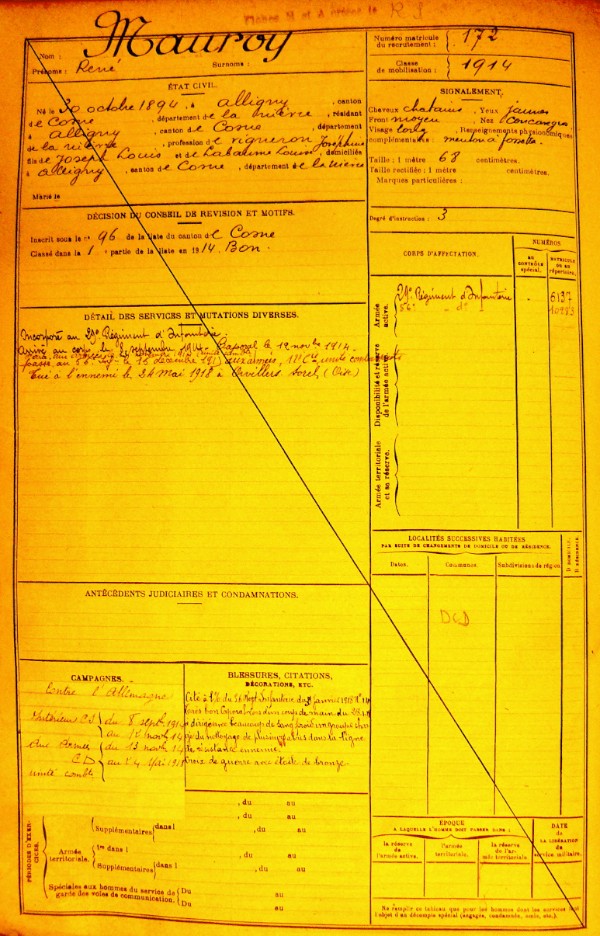 Mauroy
Nom :
Prénoms : René Surnoms :
Numéro matricule du recrutement : 172
Classe de mobilisation : 1914
ÉTAT CIVIL.
Né le 30 octobre 1894, à Alligny, canton
de Cosne, département de la Nièvre, résidant
à Alligny, canton de Cosne, département
de la Nièvre, profession de vigneron
fils de Joseph Louis et de Labaume Louise Joséphine, domiciliés
à Alligny, canton de Cosne, département de la Nièvre
Marié le
SIGNALEMENT.
Cheveux chatains, Yeux jaunes
Front moyen Nez
Visage long, Renseignements physionomiques
complémentaires : menton à fossette
Taille : 1 mètre 68 centimètres.
Taille rectifiée : 1 mètre centimètres.
Marques particulières :
Degré d'instruction : 3
DÉCISION DU CONSEIL DE REVISION ET MOTIFS.
Inscrit sous le n° 96 de la liste du canton de Cosne
Classé dans la 1 partie de la liste en 1914. Bon.
CORPS D'AFFECTATION.
NUMÉROS
AU CONTRÔLE spécial.
MATRICULE OU AU répertoire.
Armée active.
29e Régiment d'Infanterie 6137
56e d° 10983
Disponibilité et réserve de l'armée active.
Armée territoriale et sa réserve.
DÉTAIL DES SERVICES ET MUTATIONS DIVERSES.
Incorporé au 29e Régiment d'Infanterie.
Arrivé au corps le 8 septembre 1914. Caporal le 12 novbre 1914.
Passé au 56 le 15 décembre aux armées, 11e Cie unité combattante
Tué à l'ennemi le 24 Mai 1918 à Orvillers Sorel (Oise)
LOCALITÉS SUCCESSIVES HABITÉES
PAR SUITE DE CHANGEMENTS DE DOMICILE OU DE RÉSIDENCE.
Dates. Communes. Subdivisions de région.
D DOMICILE. R RÉSIDENCE.
DCD
ANTÉCÉDENTS JUDICIAIRES ET CONDAMNATIONS.
CAMPAGNES.
Contre l'Allemagne
Intérieur CS du 8 septbre 1914
au 12 novb 14
Aux Armées du 13 novb 14
CD au 24 Mai 1918
unité combte
BLESSURES, CITATIONS,
DÉCORATIONS, ETC.
Cité à l'O. du 56 Régt Infanterie du janvier 1918
Très bon caporal. Lors d'un coup de main du
a dirigé avec beaucoup de sang froid un groupe
du nettoyage de plusieurs abris dans la ligne
de résistance ennemie.
Croix de guerre avec étoile de bronze
PÉRIODES D'EXERCICES.
, du au
, du au
Supplémentaires dans l , du au
Armée territoriale.
1re dans l
Supplémentaires dans l
Spéciales aux hommes du service de garde des voies de communication.
Du au
Du au
ÉPOQUE
A LAQUELLE L'HOMME DOIT PASSER DANS :
la réserve de l'armée active.
l'armée territoriale.
la réserve de l'armée territoriale.
DATE de LA LIBÉRATION du service militaire.
Ne remplir ce tableau que pour les hommes dont les services font
l'objet d'un décompte spécial (engagés, condamnés, omis, etc.).